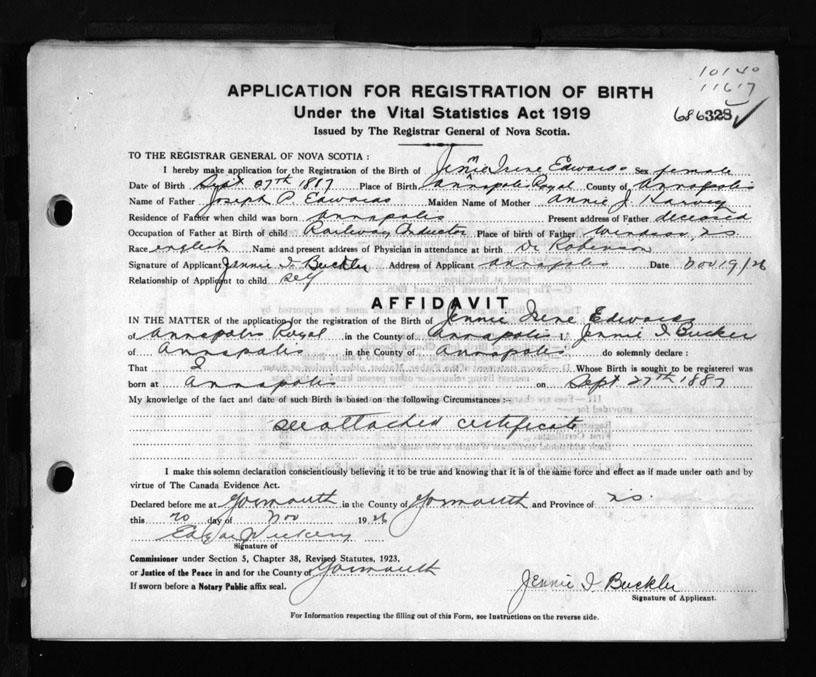 10140
11617
686328
APPLICATION FOR REGISTRATION OF BIRTH
Under the Vital Statistics Act 1919
Issued by The Registrar General of Nova Scotia.
TO THE REGISTRAR GENERAL OF NOVA SCOTIA :
I hereby make application for the Registration of the Birth of Jennie Irene Edwards Sex female
Date of Birth Sept 27th 1887 Place of Birth Annapolis Royal County of Annapolis
Name of Father Joseph P. Edwards Maiden Name of Mother Annie J. Harvey
Residence of Father when child was born Annapolis Present address of Father deceased
Occupation of Father at Birth of child Railway Place of birth of Father Windsor, NS
Race english Name and present address of Physician in attendance at birth Dr Robinson
Signature of Applicant Jennie I. Buckler Address of Applicant Annapolis Date Nov 19/26
Relationship of Applicant to child self
AFFIDAVIT
IN THE MATTER of the application for the registration of the Birth of Jennie Irene Edwards
of Annapolis Royal in the County of Annapolis I, Jennie I Buckler
of Annapolis in the County of Annapolis do solemnly declare :
That I Whose Birth is sought to be registered was
born at Annapolis on Sept 27th 1887
My knowledge of the fact and date of such Birth is based on the following Circumstances :-
see attached certificate
I make this solemn declaration conscientiously believing it to be true and knowing that it is of the same force and effect as if made under oath and by
virtue of The Canada Evidence Act.
Declared before me at Yarmouth in the County of Yarmouth and Province of NS.
this 20 day of Nov 1926
Signature of
Commissioner under Section 5, Chapter 38, Revised Statutes, 1923.
or Justice of the Peace in and for the County of Yarmouth
If sworn before a Notary Public affix seal.
Jennie I Buckler
Signature of Applicant.
For Information respecting the filling out of this Form, see Instructions on the reverse side.